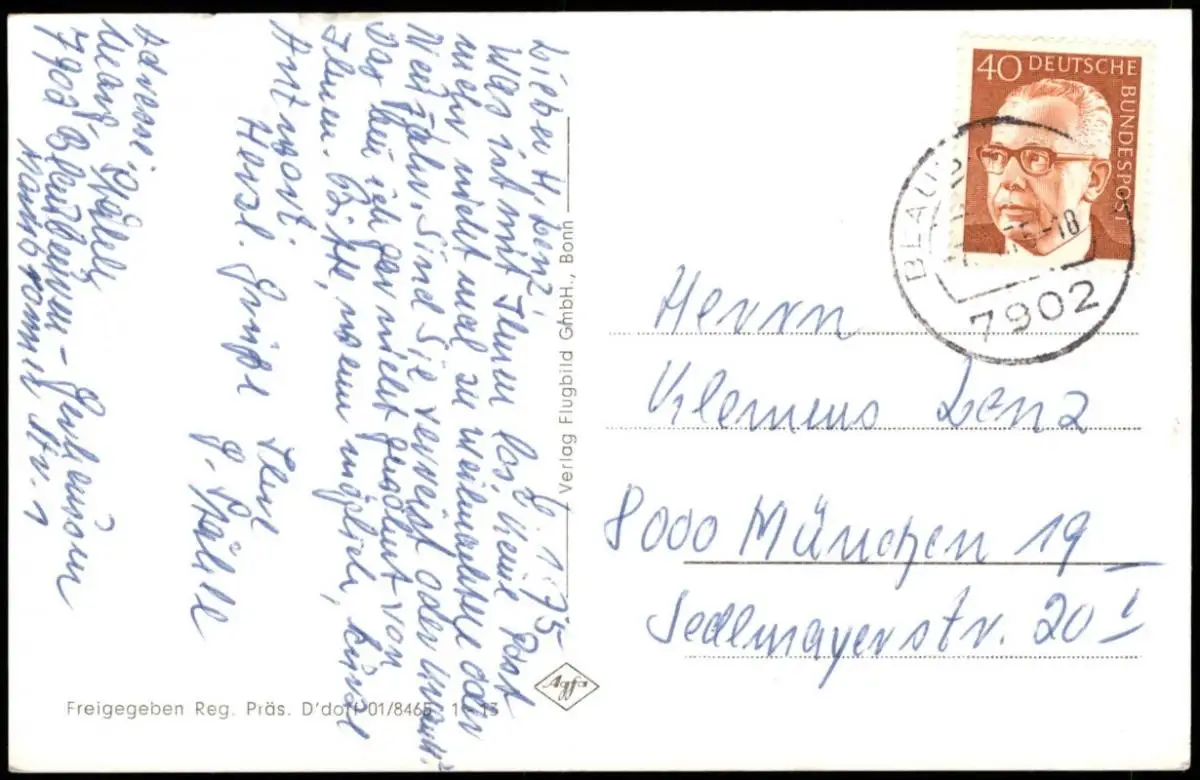 6.1.75
Lieber H. Lenz!
Was ist mit Ihnen los, keine Post
mehr nicht mal zu Weihnachten oder
Neujahr. Sind Sie verreist oder krank?
Das bin ich gar nicht gewöhnt von
Ihnen. Bitte, wenn möglich, kurze
Antwort.
Herzl. Grüße Ihr
Adresse:
7902 Blaubeuren-Gerhausen
Str. 1
Verlag Flugbild GmbH., Bonn
Agfa
Freigegeben Reg. Präs. D'dorf 01/8465
40 DEUTSCHE
BUNDESPOST
BLAU
-18
7902
Herrn
Klemens Lenz
8000 München 19
Sedlmayerstr. 20 I